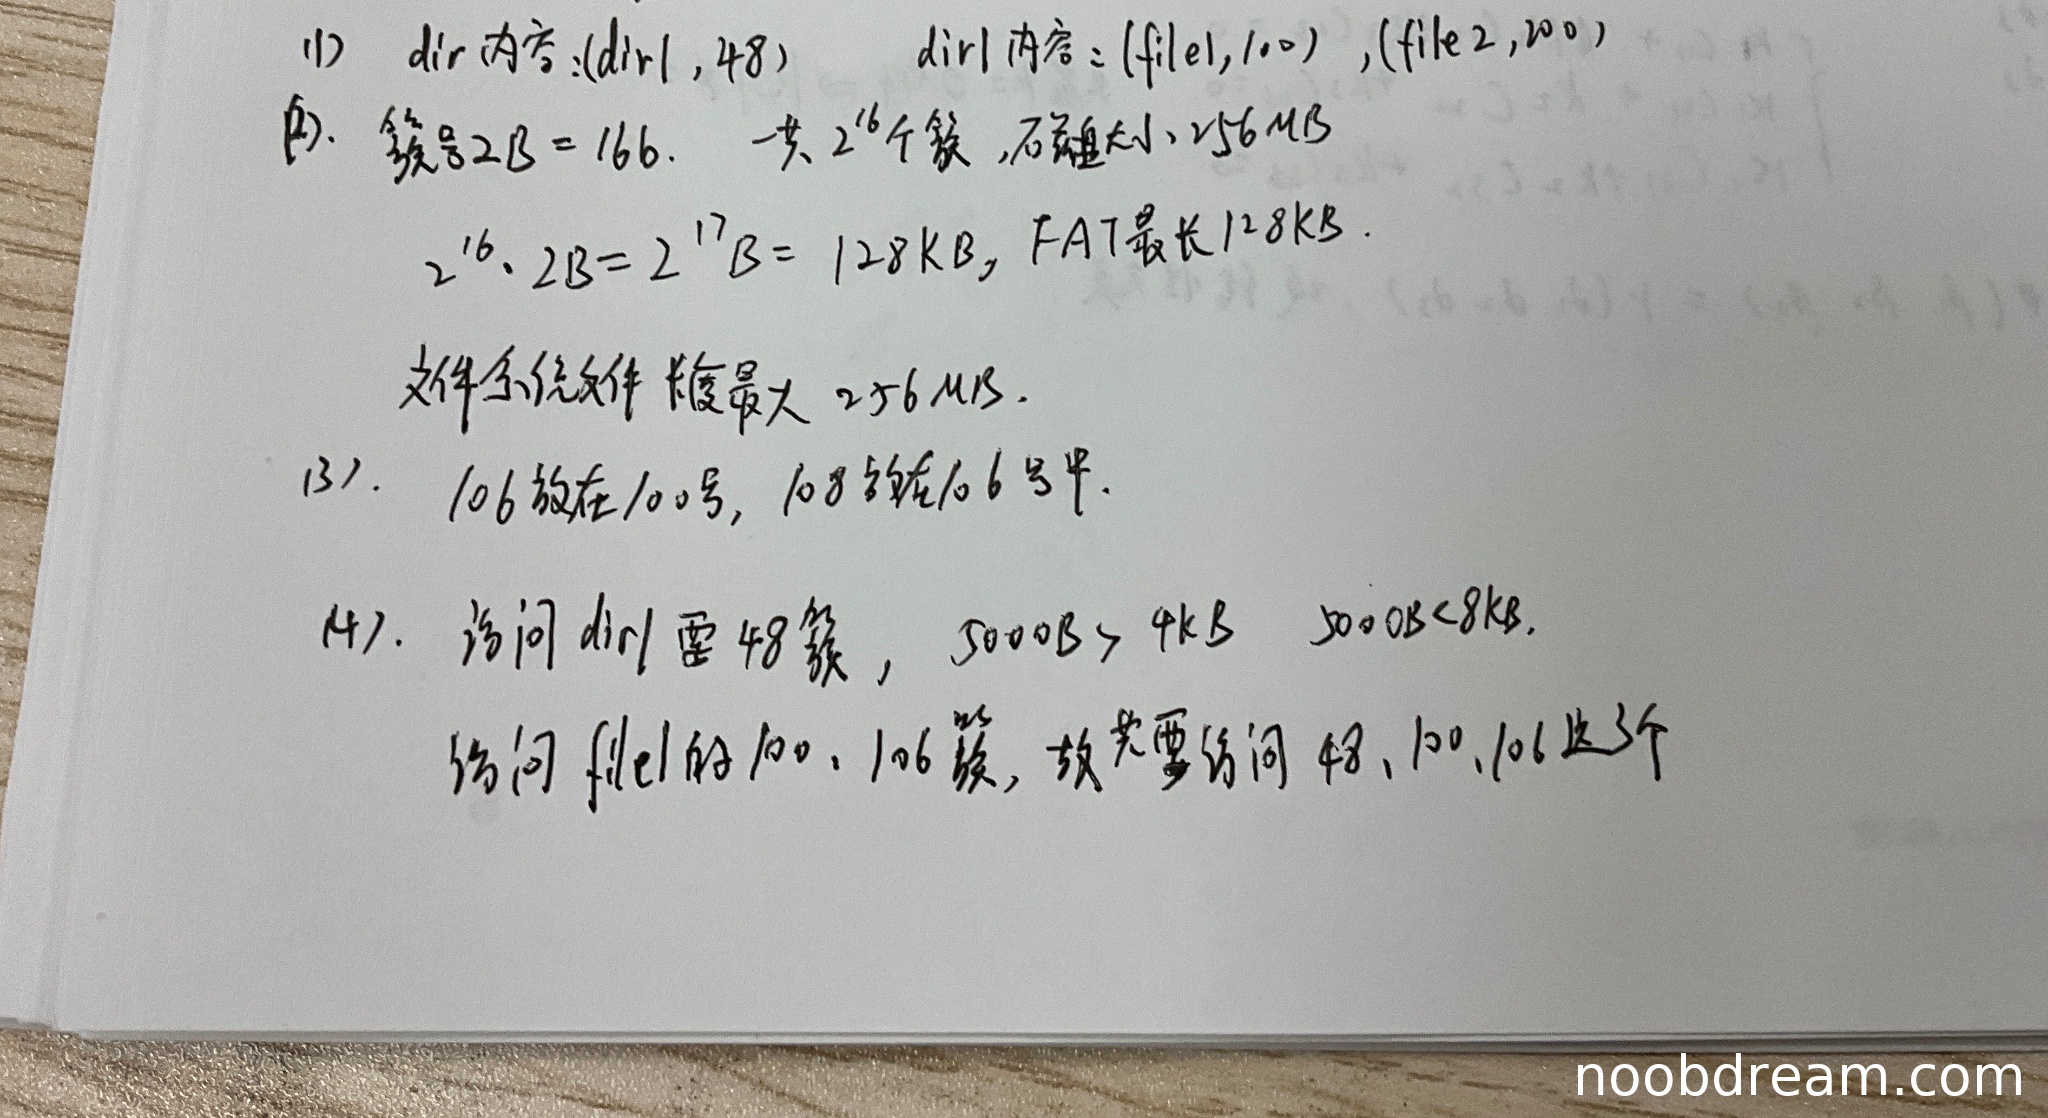 (1) dir内容:(dir1,48) dir1内容:(file1,100),(file2,200)
(2). 簇号2B=16b. 一共2^16个簇,磁盘大小、256MB
2^16·2B=2^17B=128KB, FAT最长128KB.
文件系统文件长度最大256MB.
(3). 106放在100号,108放在106号中.
(4). 访问dir1需48簇, 5000B>4KB 5000B<8KB.
访问file1的100、106簇,故共需访问48、100、106这3个
noobdream.com